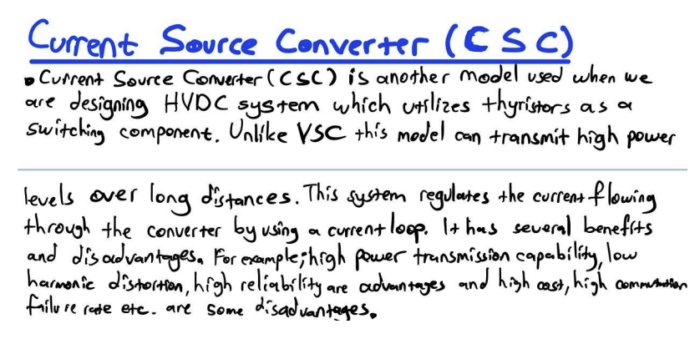 Current Source Converter (CSC)
• Current Source Converter (CSC) is another model used when we
are designing HVDC system which utilizes thyristors as a
switching component. Unlike VSC this model can transmit high power
levels over long distances. This system regulates the current flowing
through the converter by using a current loop. It has several benefits
and disadvantages. For example; high power transmission capability, low
harmonic distortion, high reliability are advantages and high cost, high commutation
failure rate etc. are some disadvantages.